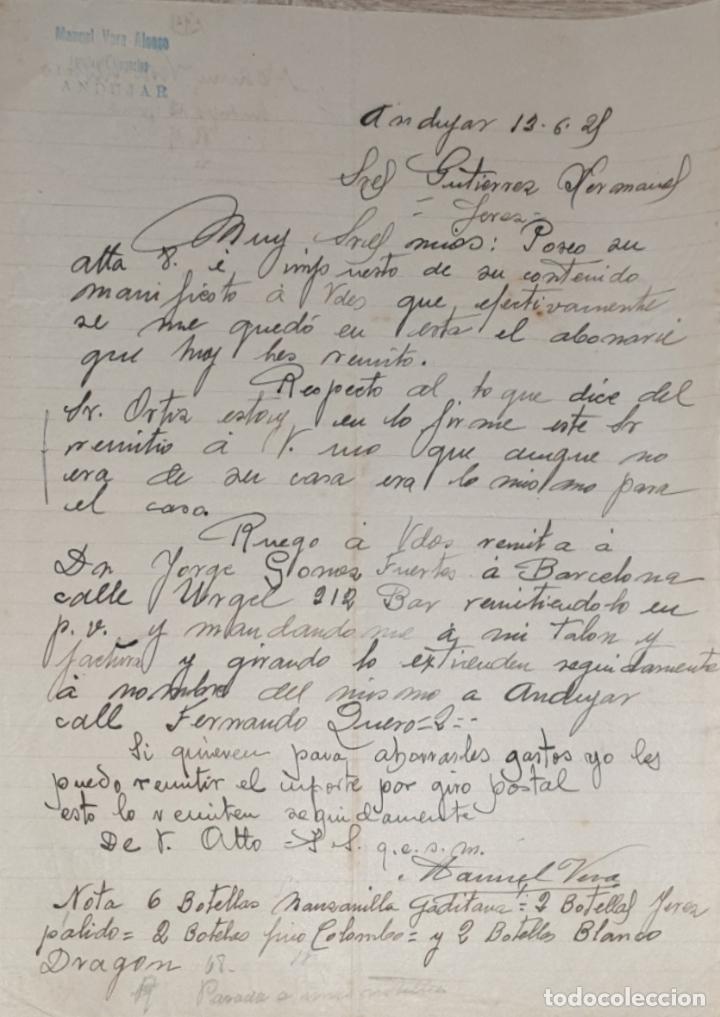 Manuel Vera Alonso
ANDUJAR
Andujar 13-6-25
Sres Gutierrez Hermanos
= Jerez =
Muy Sres mios: Poseo su
atta 8. é impuesto de su contenido
manifiesto á Vdes que efectivamente
se me quedó en esta el abonaré
que hoy les remito.
Respecto al lo que dice del
Sr. Ortiz estoy en lo firme este Sr
remitio á V. uno que aunque no
era de su casa era lo mismo para
el caso.
Ruego á Vdes remita á
Dn Jorge Fuertes á Barcelona
calle Urgel 212 Bar remitiendolo en
p. v. y mandandome á mi talon y
factura y girando lo extienden seguidamente
á nombre del mismo a Andujar
call Fernando Quero = 2 = -
Si quieren para ahorrarles gastos yo les
puedo remitir el importe por giro postal
esto lo remiten seguidamente
De V. Atto = S. S. q. e. s. m.
Manuel Vera
Nota 6 Botellas Manzanilla Gaditana = 2 Botellas Jerez
palido = 2 Botellas fino Colombo = y 2 Botellas Blanco
Dragon 18.
todocoleccion